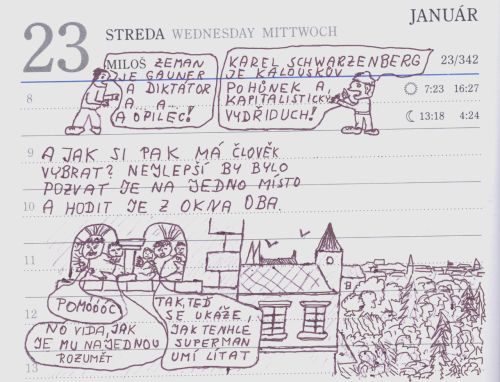 JANUÁR
23
STREDA WEDNESDAY MITTWOCH
23/342
7:23 16:27
13:18 4:24
8
MILOŠ ZEMAN
JE GAUNER
A DIKTÁTOR
A... A...
A OPILEC!
KAREL SCHWARZENBERG
JE KALOUSKŮV
POHŮNEK A
KAPITALISTICKÝ
VYDŘIDUCH!
9
A JAK SI PAK MÁ ČLOVĚK
VYBRAT? NEJLEPŠÍ BY BYLO
POZVAT JE NA JEDNO MÍSTO
10
A HODIT JE Z OKNA OBA.
11
POMÓÓÓC
12
NO VIDA, JAK
JE MU NAJEDNOU
ROZUMĚT
TAK, TEĎ
SE UKÁŽE,
JAK TENHLE
SUPERMAN
UMÍ LÍTAT
13